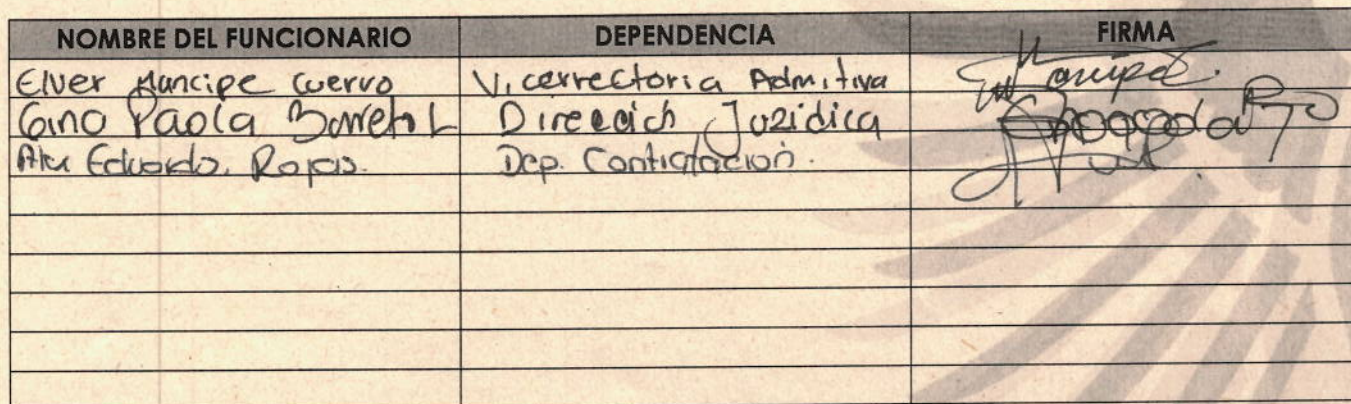 NOMBRE DEL FUNCIONARIO DEPENDENCIA FIRMA
Elver Mancipe Cuervo Vicerrectoria Admitiva Mancipe
Gino Paola Barreto L Dirección Jurídica
Alex Eduardo. Rojas. Dep. Contratación.